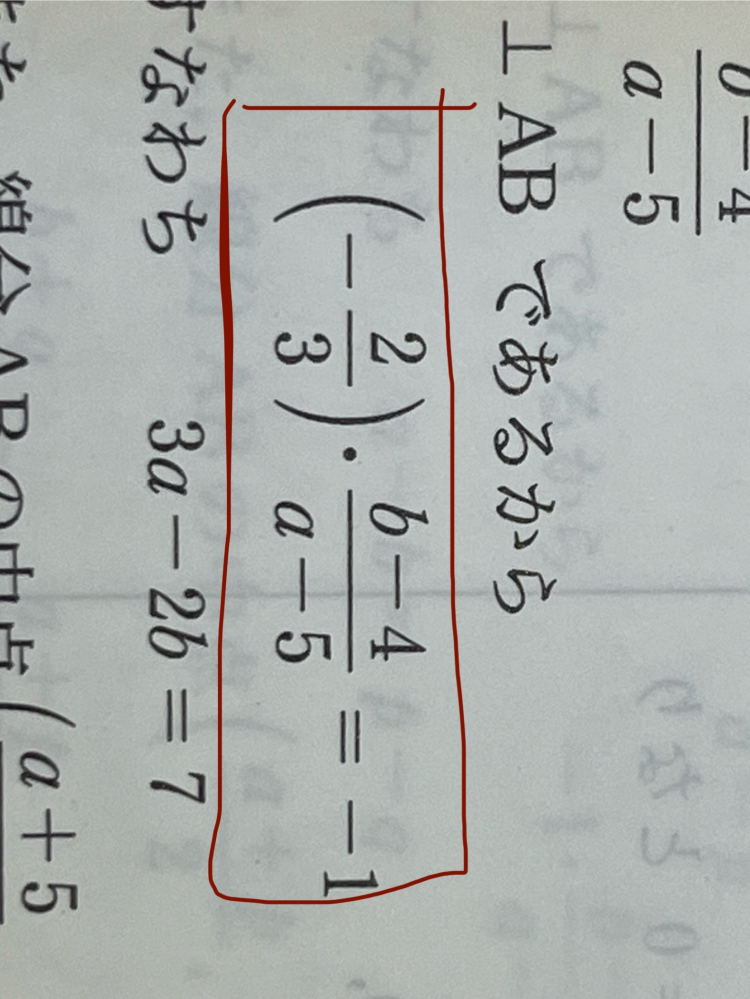 b-4
a-5
⊥ AB であるから
(-2/3)・(b-4)/(a-5) = -1
なわち 3a-2b=7
線分 ABの中点(a+5